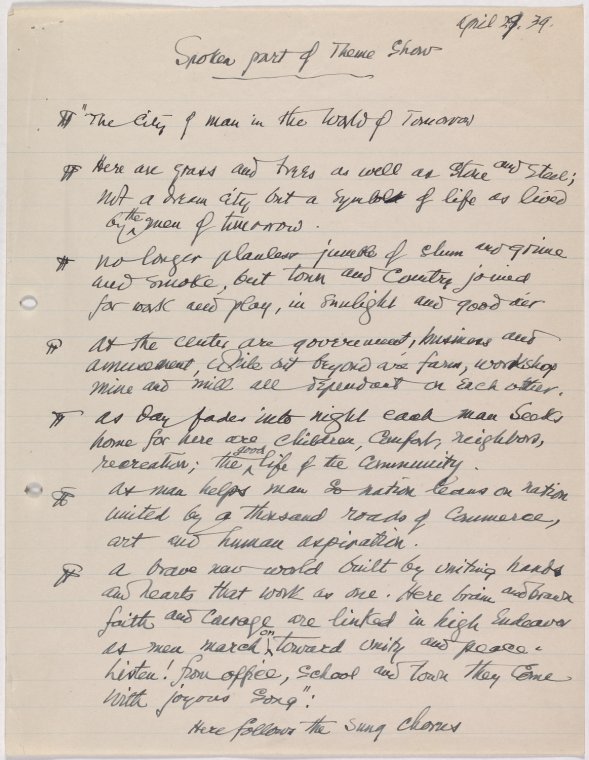 April 29. 39.
Spoken part of Theme Show
"The City of man in the World of Tomorrow
Here are grass and trees as well as Stone and Steel;
not a dream city but a symbol of life as lived
by the men of tomorrow.
no longer planless jumble of slum and grime
and smoke, but town and Country joined
for work and play, in sunlight and good air
at the center are government, business and
amusement, while out beyond are farm, workshop
mine and mill all dependent on each other.
as Day fades into night each man seeks
home for here are children, comfort, neighbors,
recreation; the good life of the Community.
as man helps man so nation leans on nation
united by a thousand roads of Commerce,
art and human aspiration.
a brave new world built by uniting hands
and hearts that work as one. Here brain and brawn
faith and Courage are linked in high Endeavor
as men march on toward Unity and peace.
Listen! from office, School and town they Come
with joyous Song":
Here follows the Sung Chorus